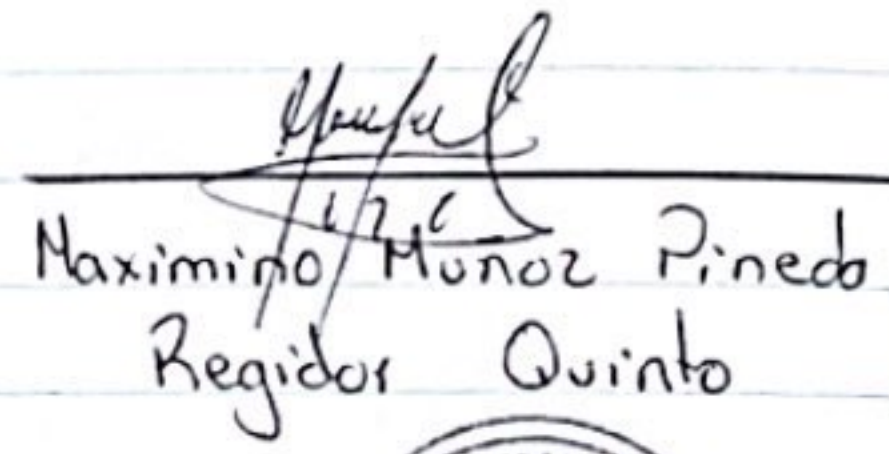 Maximino Muñoz Pinedo
Regidor Quinto